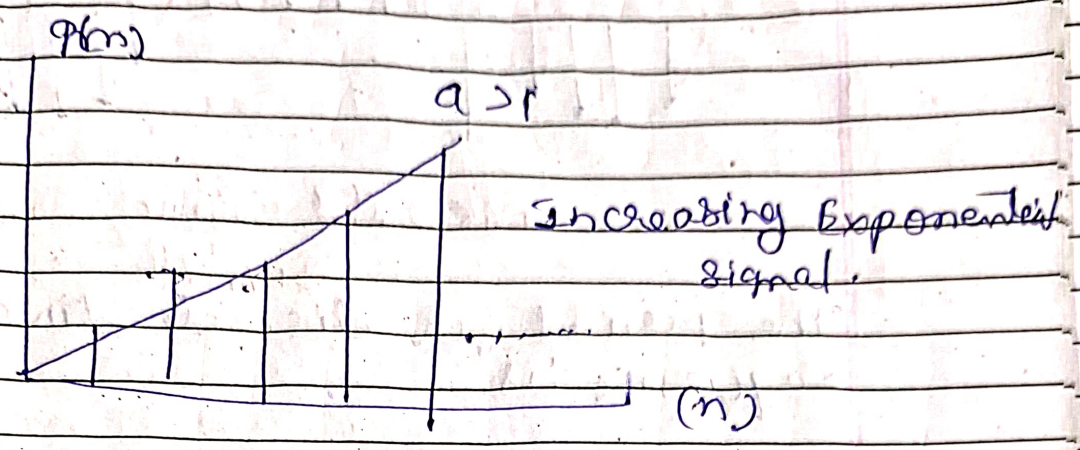 a >1
Increasing Exponential
signal.
(n)